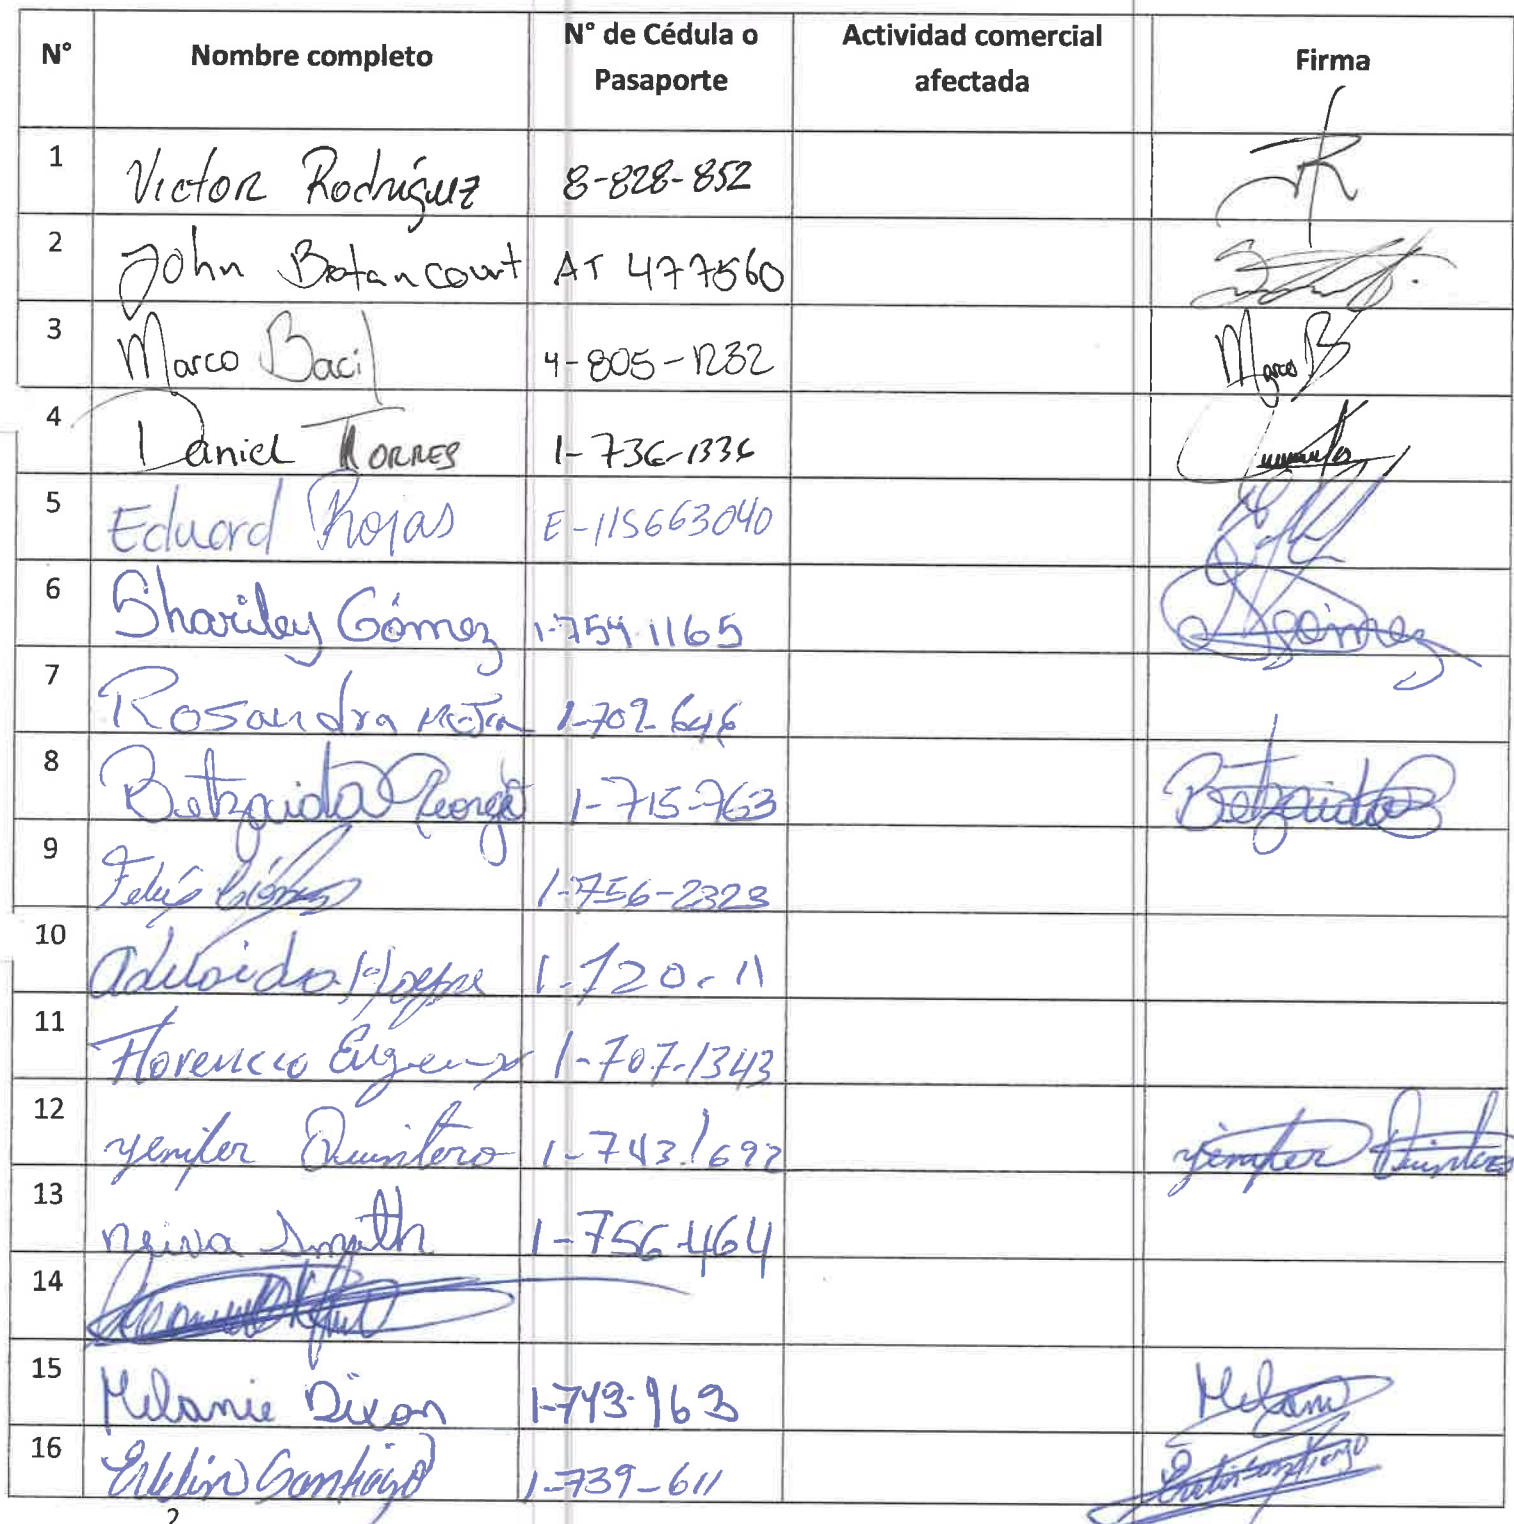 N° Nombre completo N° de Cédula o Pasaporte Actividad comercial afectada Firma
1 Victor Rodríguez 8-828-852
2 John Betancourt AT 477560
3 Marco Bacil 4-805-1232 Marco B
4 Daniel Torres 1-736-1336
5 Eduard Rojas E-115663040
6 Shariley Gómez 1-754-1165 Gómez
7 Rosandra 1-702-646
8 Betzaida 1-715-763 Betzaida
9 1-756-2323
10 1-720-11
11 Florencio 1-707-1343
12 yenifer Quintero 1-743-1692 yenifer Quintero
13 Neiva Smith 1-756-464
14
15 Melanie Dixon 1-749-963 Melanie
16 Santiago 1-739-611 Santiago
2